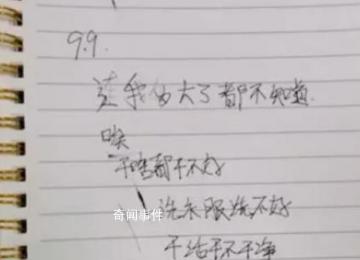 9.9.
连我多大了都不知道
唉
干啥都干不好
洗衣服洗不好
干活干不干净
奇闻事件